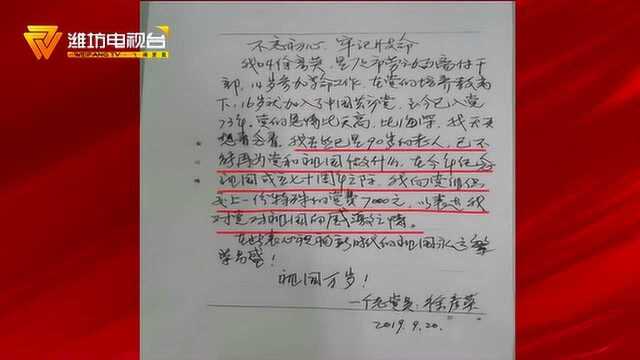 潍坊电视台
WEIFANG TV
不忘初心,牢记使命
我叫徐,是市劳动局离休干
部,14岁参加革命工作,在党的培养教育
下,16岁就加入了中国共产党,至今已入党
73年。党的恩情比天高,比海深,我天天
想着念着。我虽然已是90岁的老人,已不
能再为党和祖国做什么,在今年纪念
祖国成立七十周年之际,我向党组织
交上一份特殊的党费7000元,以表达我
对党对祖国的感激之情。
在此衷心祝福新时代的祖国永远繁
荣昌盛!
祖国万岁!
一个老党员:徐
2019.9.20.